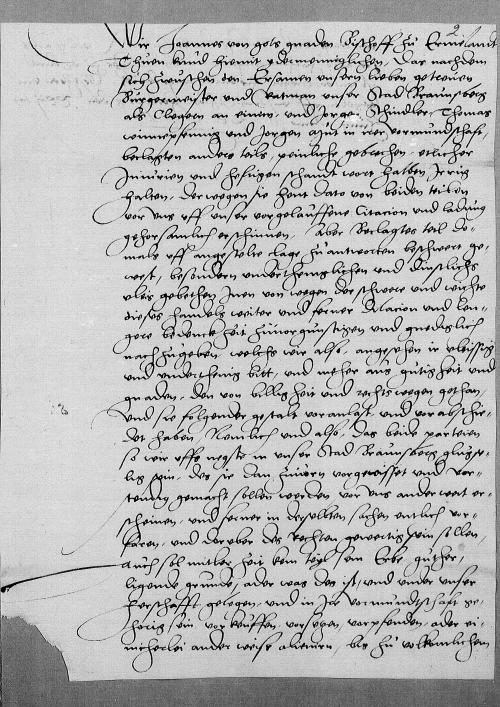 2
Wir Joannes von gots gnaden Bischoff zu Ermelandt
Thuen kund hiemit ydermenniglichen, Das nachdem
sich zwuschen den Ersamen unsern lieben getreuen
Burgermeister und Ratman unser Stad Braunsberg
als Clegern an einem, und Jorgen Schindler, Thomas
und Jorgen in irer vormundschaft,
beclagten anders teils, peinliche gebrechen, etlicher
Injurien und hessigen schandt wort halben, Irrig
halten, derwegen sie heut dato von beiden teilen
vor uns uff unser vorgelauffene Citacion und ladung
gehorsamlich erschinnen, Aber Beclagtes teil do-
mals uff angestelte clage zu antworten beschwert ge-
west, besondern underthenniglichen und dinstlichs
vleis gebethen Inen von wegen der schwere und wichte
dieses handels weiter und ferner Dilacion und len-
gere bedenck zeit zuvorgunstigen und gnediglich
nachzugeben, welchs wir also, angesehen ir vleissig
und underthenig bitt, und mehr aus gutigkeit und
gnaden, den von billigkeit und rechts wegen gethan,
Und sie folgender gestalt voranlast und vorabschie-
det haben, Nemlich und also, das beide parteien
so wir uffs negste in unser Stad Braunsberg
sein, des sie dan zuvorn vorgewisset und vor-
stendig gemacht sollen werden vor uns anderweit er-
scheinen, und ferner in derselbten sachen entlich vor-
faren, und doruber des Rechten gewertig sein sollen,
Auch sol mitler zeit kein teil sein Erbe, guther,
ligende grunde, ader was das ist, und under unser
herschafft gelegen, und in Ire vormundtschaft ge-
horig sein vorkeuffen, vorsetzen, vorpfenden, ader ei-
nicherlei ander weise alieniren, bis zu volkumlichem